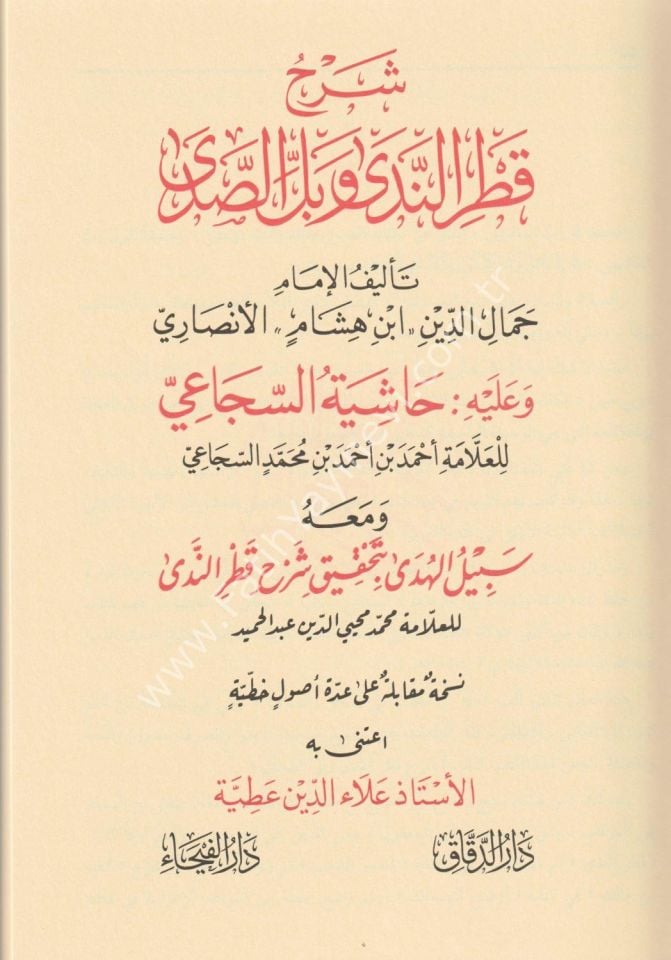 شَرْحُ
قَطْرِ النَّدَى وَبَلِّ الصَّدَى
تَأْلِيفُ الإِمَامِ
جَمَالِ الدِّيْنِ «ابْنِ هِشَامٍ» الأَنْصَارِيِّ
وَعَلَيْهِ: حَاشِيَةُ السِّجَاعِيِّ
لِلْعَلَّامَةِ أَحْمَدَ بْنِ أَحْمَدَ بْنِ مُحَمَّدٍ السِّجَاعِيِّ
وَمَعَهُ
سَبِيْلُ الهُدَى بِتَحْقِيْقِ شَرْحِ قَطْرِ النَّدَى
للعلّامة محمّد محيي الدين عبد الحميد
نسخةٌ مُقابلةٌ على عدّة أصولٍ خطّيّةٍ
اعتنى به
الأُسْتَاذ عَلَاء الدِّيْن عَطِيَّة
دَارُ الدَّقَّاقِ
دَارُ الفَيْحَاءِ